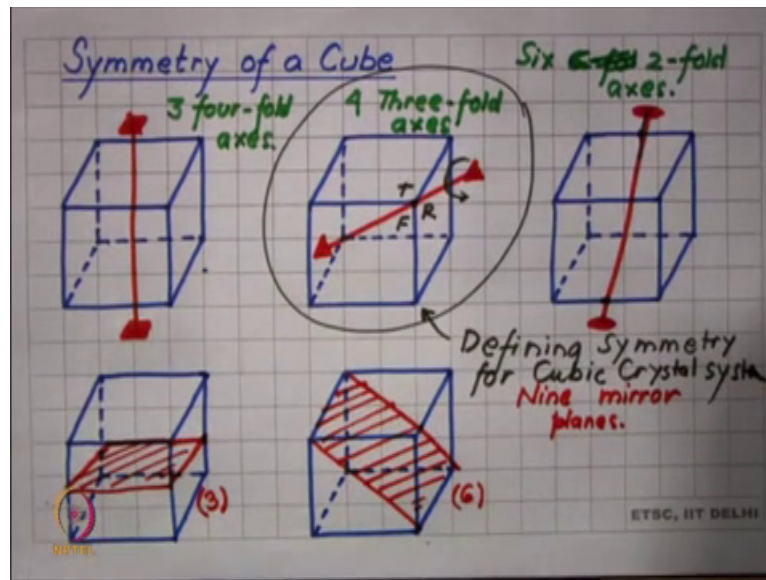 Symmetry of a Cube
3 four-fold
axes.
4 Three-fold
axes
Six 2-fold
axes.
T
F R
Defining Symmetry
for Cubic Crystal syste
Nine mirror
planes.
(3)
(6)
ETSC, IIT DELHI
NPTEL